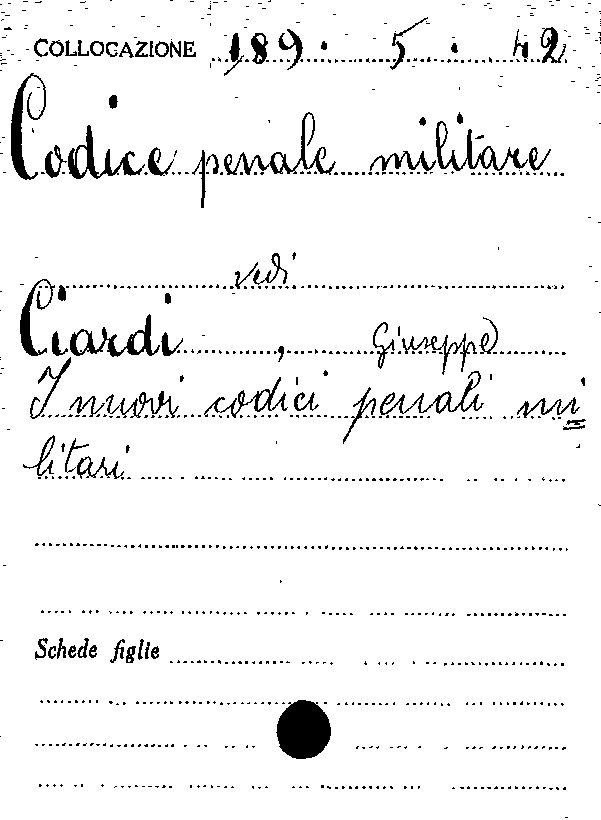 COLLOCAZIONE 189. 5. 42
Codice penale militare
vedi
Ciardi, Giuseppe
I nuovi codici penali mi=
litari
Schede figlie